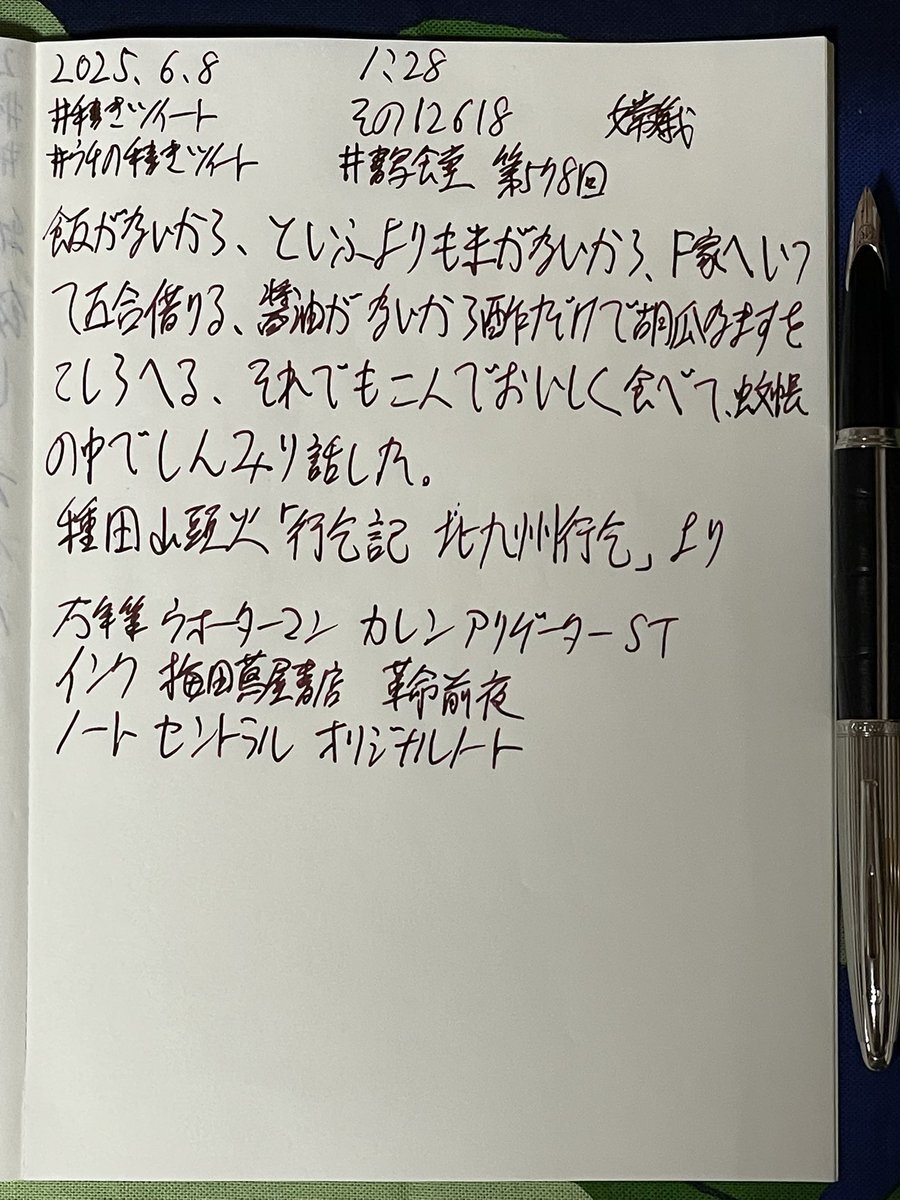 2025.6.8 1:28
#手書きツイート その12618 嫦娥
#うちの手書きツイート #書写会堂 第578回
飯がないから、といふよりも米がないから、F家へいつ
て五合借りる、醤油がないから酢だけで胡瓜なますを
こしらへる、それでもこんでおいしく食べて、蚊帳
の中でしんみり話した。
種田山頭火「行乞記 北九州行乞」より
万年筆 ウォーターマン カレン アリゲーターST
インク 梅田蔦屋書店 革命前夜
ノート セントラル オリジナルノート